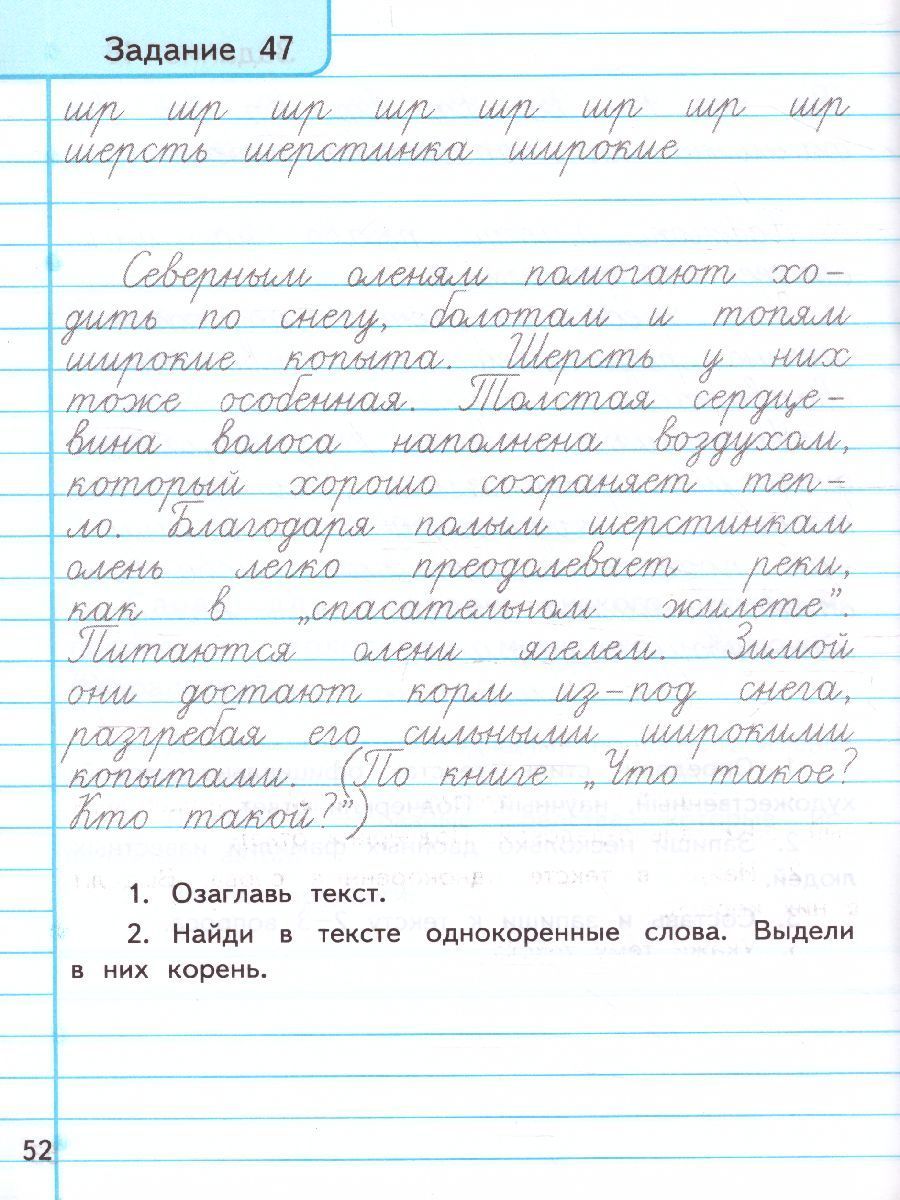 Задание 47
шр шр шр шр шр шр шр шр
шерсть шерстинка широкие
Северным оленям помогают хо-
дить по снегу, болотам и топям
широкие копыта. Шерсть у них
тоже особенная. Толстая сердце-
вина волоса наполнена воздухом,
который хорошо сохраняет теп-
ло. Благодаря полым шерстинкам
олень легко преодолевает реки,
как в „спасательном жилете”.
Питаются олени ягелем. Зимой
они достают корм из-под снега,
разгребая его сильными широкими
копытами. (По книге „Что такое?
Кто такой?”)
1. Озаглавь текст.
2. Найди в тексте однокоренные слова. Выдели
в них корень.
52